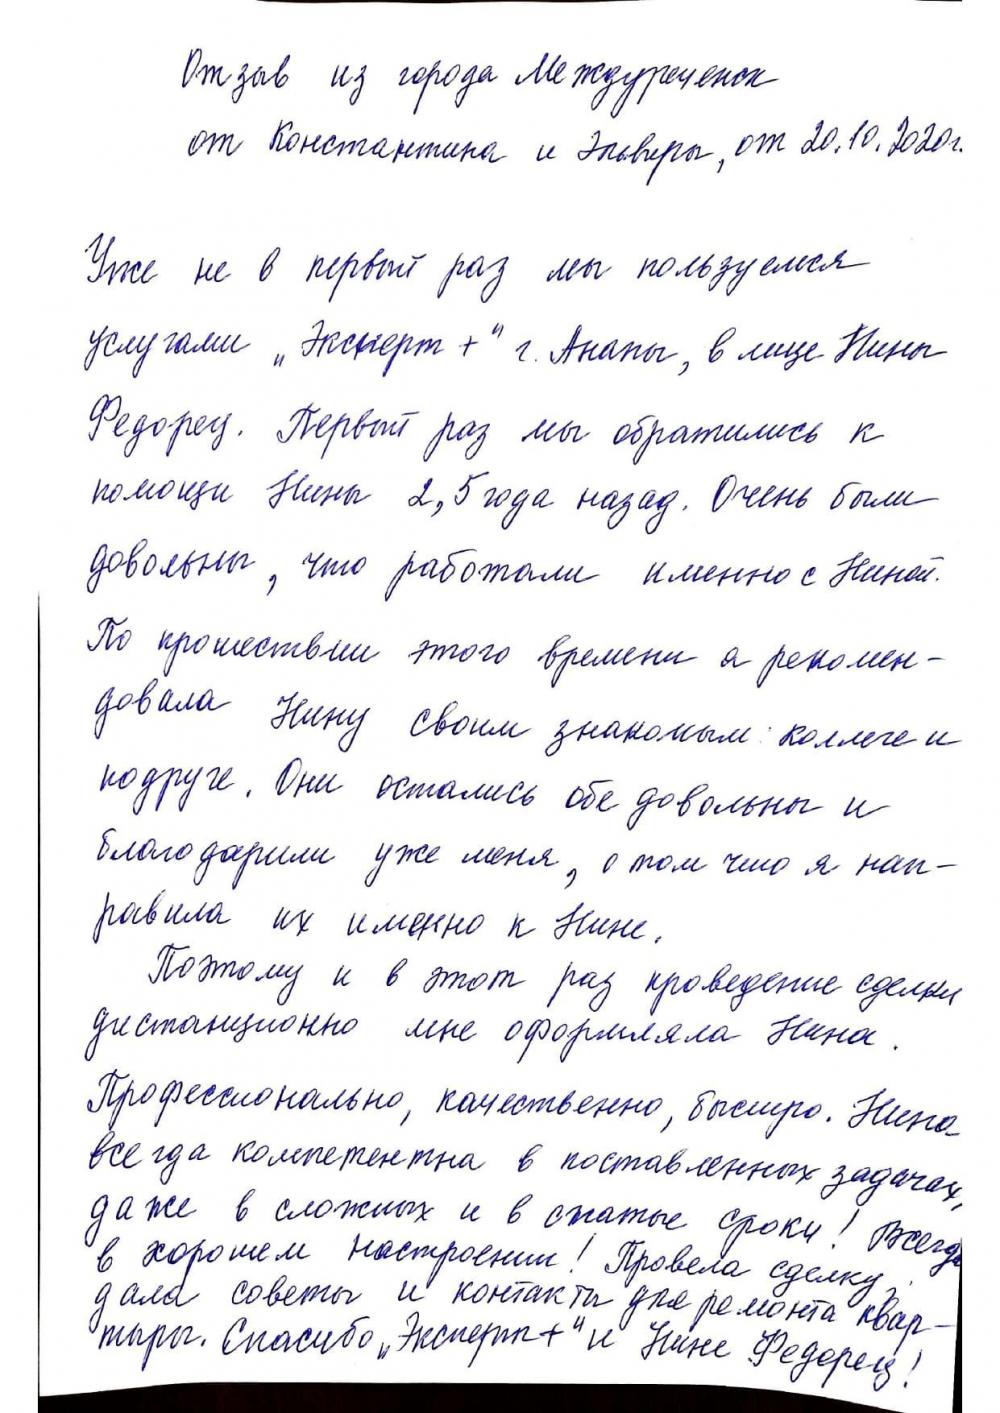 Отзыв из города Междуреченск
от Константина и Эльвиры, от 20.10.2020г.
Уже не в первый раз мы пользуемся
услугами „Эксперт +“ г. Анапы, в лице Нины
Федорец. Первый раз мы обратились к
помощи Нины 2,5 года назад. Очень были
довольны, что работали именно с Ниной.
По прошествии этого времени я рекомен-
довала Нину своим знакомым: коллеге и
подруге. Они остались обе довольны и
благодарили уже меня, о том что я нап-
равила их именно к Нине.
Поэтому и в этот раз проведение сделки
дистанционно мне оформляла Нина.
Профессионально, качественно, быстро. Нина
всегда компетентна в поставленных задачах,
даже в сложных и в сжатые сроки! Всегда
в хорошем настроении! Провела сделку,
дала советы и контакты для ремонта квар-
тиры. Спасибо „Эксперт+“ и Нине Федорец!